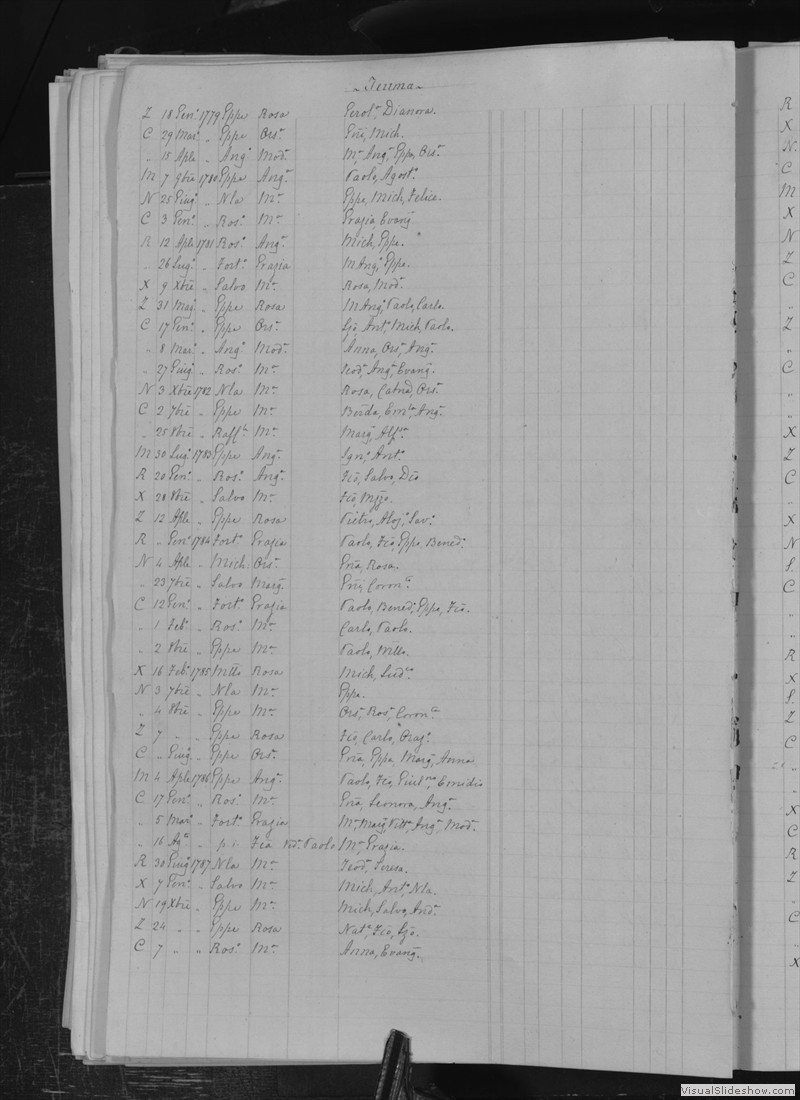 Z 18 Gen° 1779 Gppe Rosa Gerol.ª Dianora.
C 29 Mar. „ Gppe Ors.ª Gñi, Mich.
„ 15 Aple „ Ang° Mod.ª M.ª Ang.ª Gppe, Ors.ª
M 7 9bre 1780 Gppe Ang.ª Paolo, Agost.°
N 25 Giug° „ Nla M.ª Gppe, Mich, Felice.
C 3 Gen° „ Ros.° M.ª Grazia, Evang.
R 12 Aple 1781 Ros.° Ang.ª Mich, Gppe.
„ 26 Lug° „ Fort.° Grazia M Ang.ª Gppe.
X 9 Xbre „ Salvo M.ª Rosa, Mod.ª
Z 31 Mag. „ Gppe Rosa M Ang.ª Paolo, Carlo.
C 17 Gen° „ Gppe Ors.ª Ant.° Mich, Paolo.
„ 8 Mar. „ Ang° Mod.ª Anna, Ors.ª Ang.ª
„ 27 Giug° „ Ros.° M.ª Teod.ª Ang.ª Evang.
N 3 Xbre 1782 Nla M.ª Rosa, Catnã, Ors.ª
C 2 7bre „ Gppe M.ª Ang.ª
„ 25 8bre „ Raff.le M.ª Marg,
M 30 Lug° 1783 Gppe Ang.ª Ign.° Ant.°
R 20 Gen° „ Ros.° Ang.ª Fcõ, Salvo, Dcõ
X 28 8bre „ Salvo M.ª Fcõ, Mzzo.
Z 12 Aple „ Gppe Rosa Pietro, Aloj.° Sav.°
R „ Gen° 1784 Fort° Grazia Paolo, Fcõ, Gppe, Bened.°
N 4 Aple „ Mich. Ors.ª Gñã, Rosa.
„ 23 7bre „ Salvo Marg. Gñi, Coron.ta
C 12 Gen° „ Fort° Grazia Paolo, Bened.° Gppe, Fcõ.
„ 1 Feb° „ Ros.° M.ª Carlo, Paolo.
„ 2 8bre „ Gppe M.ª Paolo, Mtto.
X 16 Feb° 1785 Mtto Rosa Mich, Lud.co
N 3 7bre „ Nla M.ª Gppe.
„ 4 8bre „ Gppe M.ª Ors.ª Ros.° Coron.ta
Z 7 „ „ Gppe Rosa Fcõ, Carlo,
C „ Giug° „ Gppe Ors.ª Gñã, Gppa, Marg, Anna
M 4 Aple 1786 Gppe Ang.ª Paolo, Fcõ, Emidio
C 17 Gen° „ Ros.° M.ª Gñã, Leonora, Ang.ª
„ 5 Mar. „ Fort° Grazia M.ª Marg, Vitt.ª Ang.ª Mod.ª
„ 16 Ag.to „ p.i. Fcã Ved. Paolo M.ª Grazia.
R 30 Giug° 1787 Nla M.ª Teod. Teresa.
X 7 Gen° „ Salvo M.ª Mich, Ant.° Nla.
N 19 Xbre „ Gppe M.ª Mich, Salvo, And.ª
Z 24 „ „ Gppe Rosa Nat.° Fcõ,
C 7 „ „ Ros.° M.ª Anna, Evang.
R
X
N.
C
M
X
N
Z
C
„
Z
„
C
„
„
X
Z
C
„
X
N
S.
C
„
„
R
X
S.
Z
C
„
„
X
C
R
Z
„
C
„
X
VisualSlideshow.com